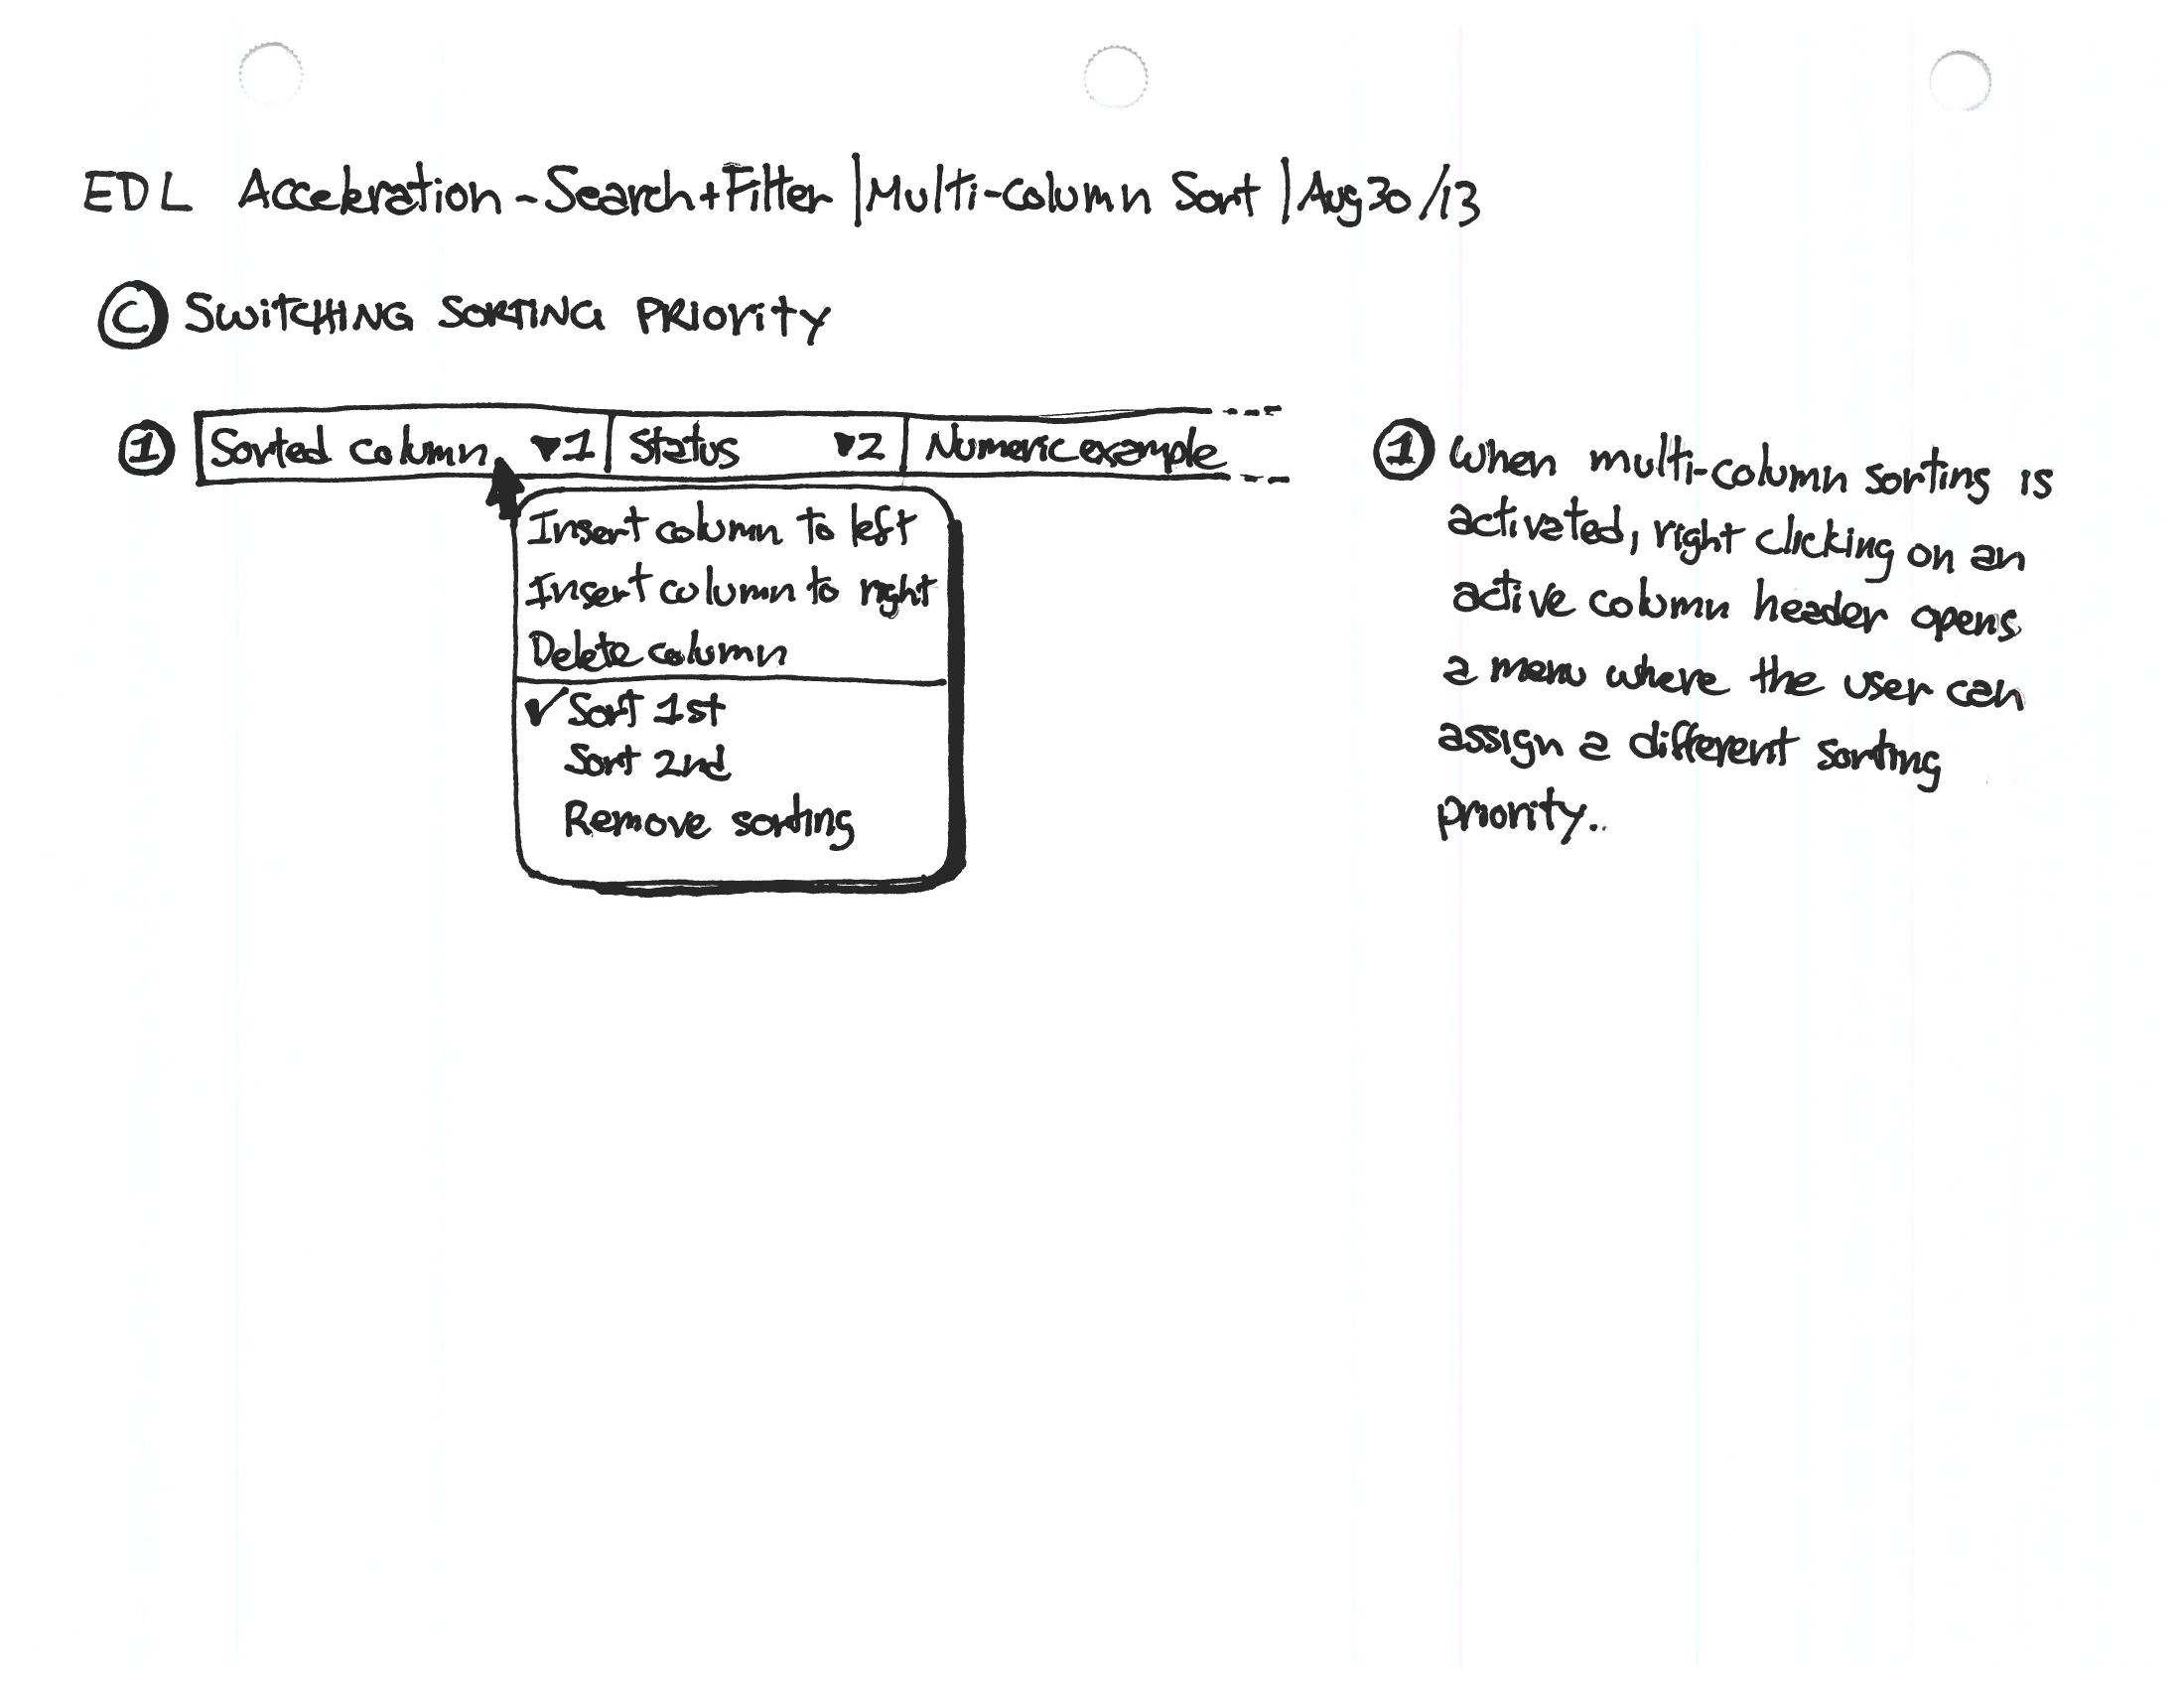 EDL Acceleration - Search + Filter | Multi-column Sort | Aug 30/13
C SWITCHING SORTING PRIORITY
1 Sorted column ▼1 Status ▼2 Numeric example
Insert column to left
Insert column to right
Delete column
✓ Sort 1st
Sort 2nd
Remove sorting
1 When multi-column sorting is
activated, right clicking on an
active column header opens
a menu where the user can
assign a different sorting
priority..